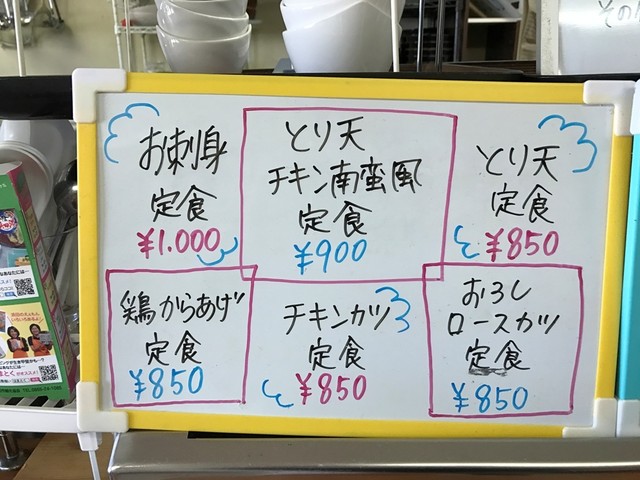 お刺身
定食
¥1.000
とり天
チキン南蛮風
定食
¥900
とり天
定食
¥850
鶏からあげ
定食
¥850
チキンカツ
定食
¥850
おろし
ロースカツ
定食
¥850